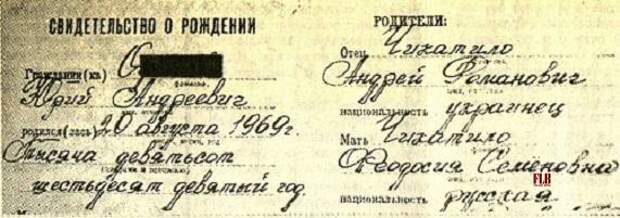 СВИДЕТЕЛЬСТВО О РОЖДЕНИИ
Гражданин(ка)
фамилия
Юрий Андреевич
родился(лась) 20 августа 1969г.
Тысяча девятьсот
шестьдесят девятый год.
РОДИТЕЛИ:
Отец Чикатило
Андрей Романович
национальность украинец
Мать Чикатило
Феодосия Семёновна
FLB
национальность русская